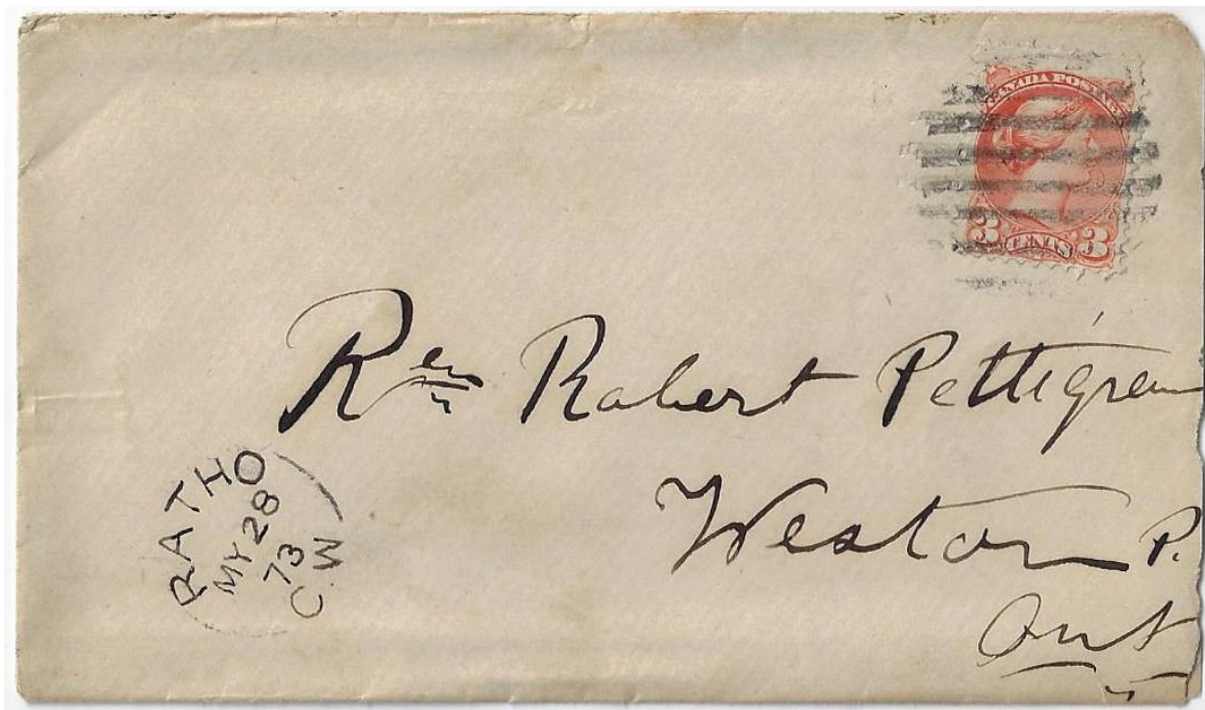 CANADA POSTAGE
3 CENTS 3
Rev Robert Pettigrew
Weston P.
Ont
RATHO
MY 28
73
C.W